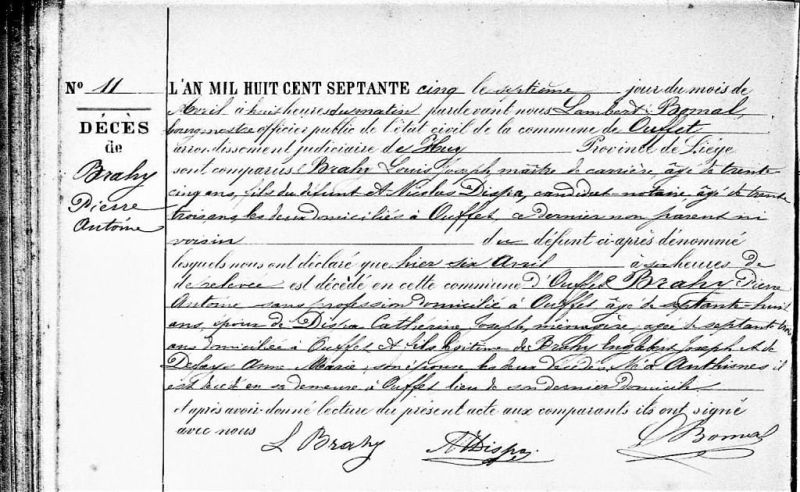 N° 11
DÉCÈS
de
Brahy
Pierre
Antoine
L'AN MIL HUIT CENT SEPTANTE cinq le septième jour du mois de
Avril à huit heures du matin pardevant nous Lambert Bomal,
bourgmestre officier public de l'état civil de la commune de Ouffet
arrondissement judiciaire de Huy Province de Liége
sont comparus Brahy Louis Joseph, maître de carrière, âgé de trente
cinq ans, fils du défunt et Nicolas Dispa, candidat notaire, âgé de trente
trois ans, les deux domiciliés à Ouffet, ce dernier non parent ni
voisin du défunt ci-après dénommé
lesquels nous ont déclaré que hier six Avril à six heures de
de relevée est décédé en cette commune d'Ouffet Brahy Pierre
Antoine sans profession domicilié à Ouffet âgé de septante-huit
ans, époux de Dispa Catherine Joseph, ménagère, âgée de septante
ans domiciliée à Ouffet et fils légitime de Brahy Joseph et de
Anne Marie, son épouse les deux décédés à Anthisnes il
est décédé en sa demeure à Ouffet lieu de son dernier domicile
et après avoir donné lecture du présent acte aux comparants ils ont signé
avec nous
L Brahy
N Dispa
L Bomal